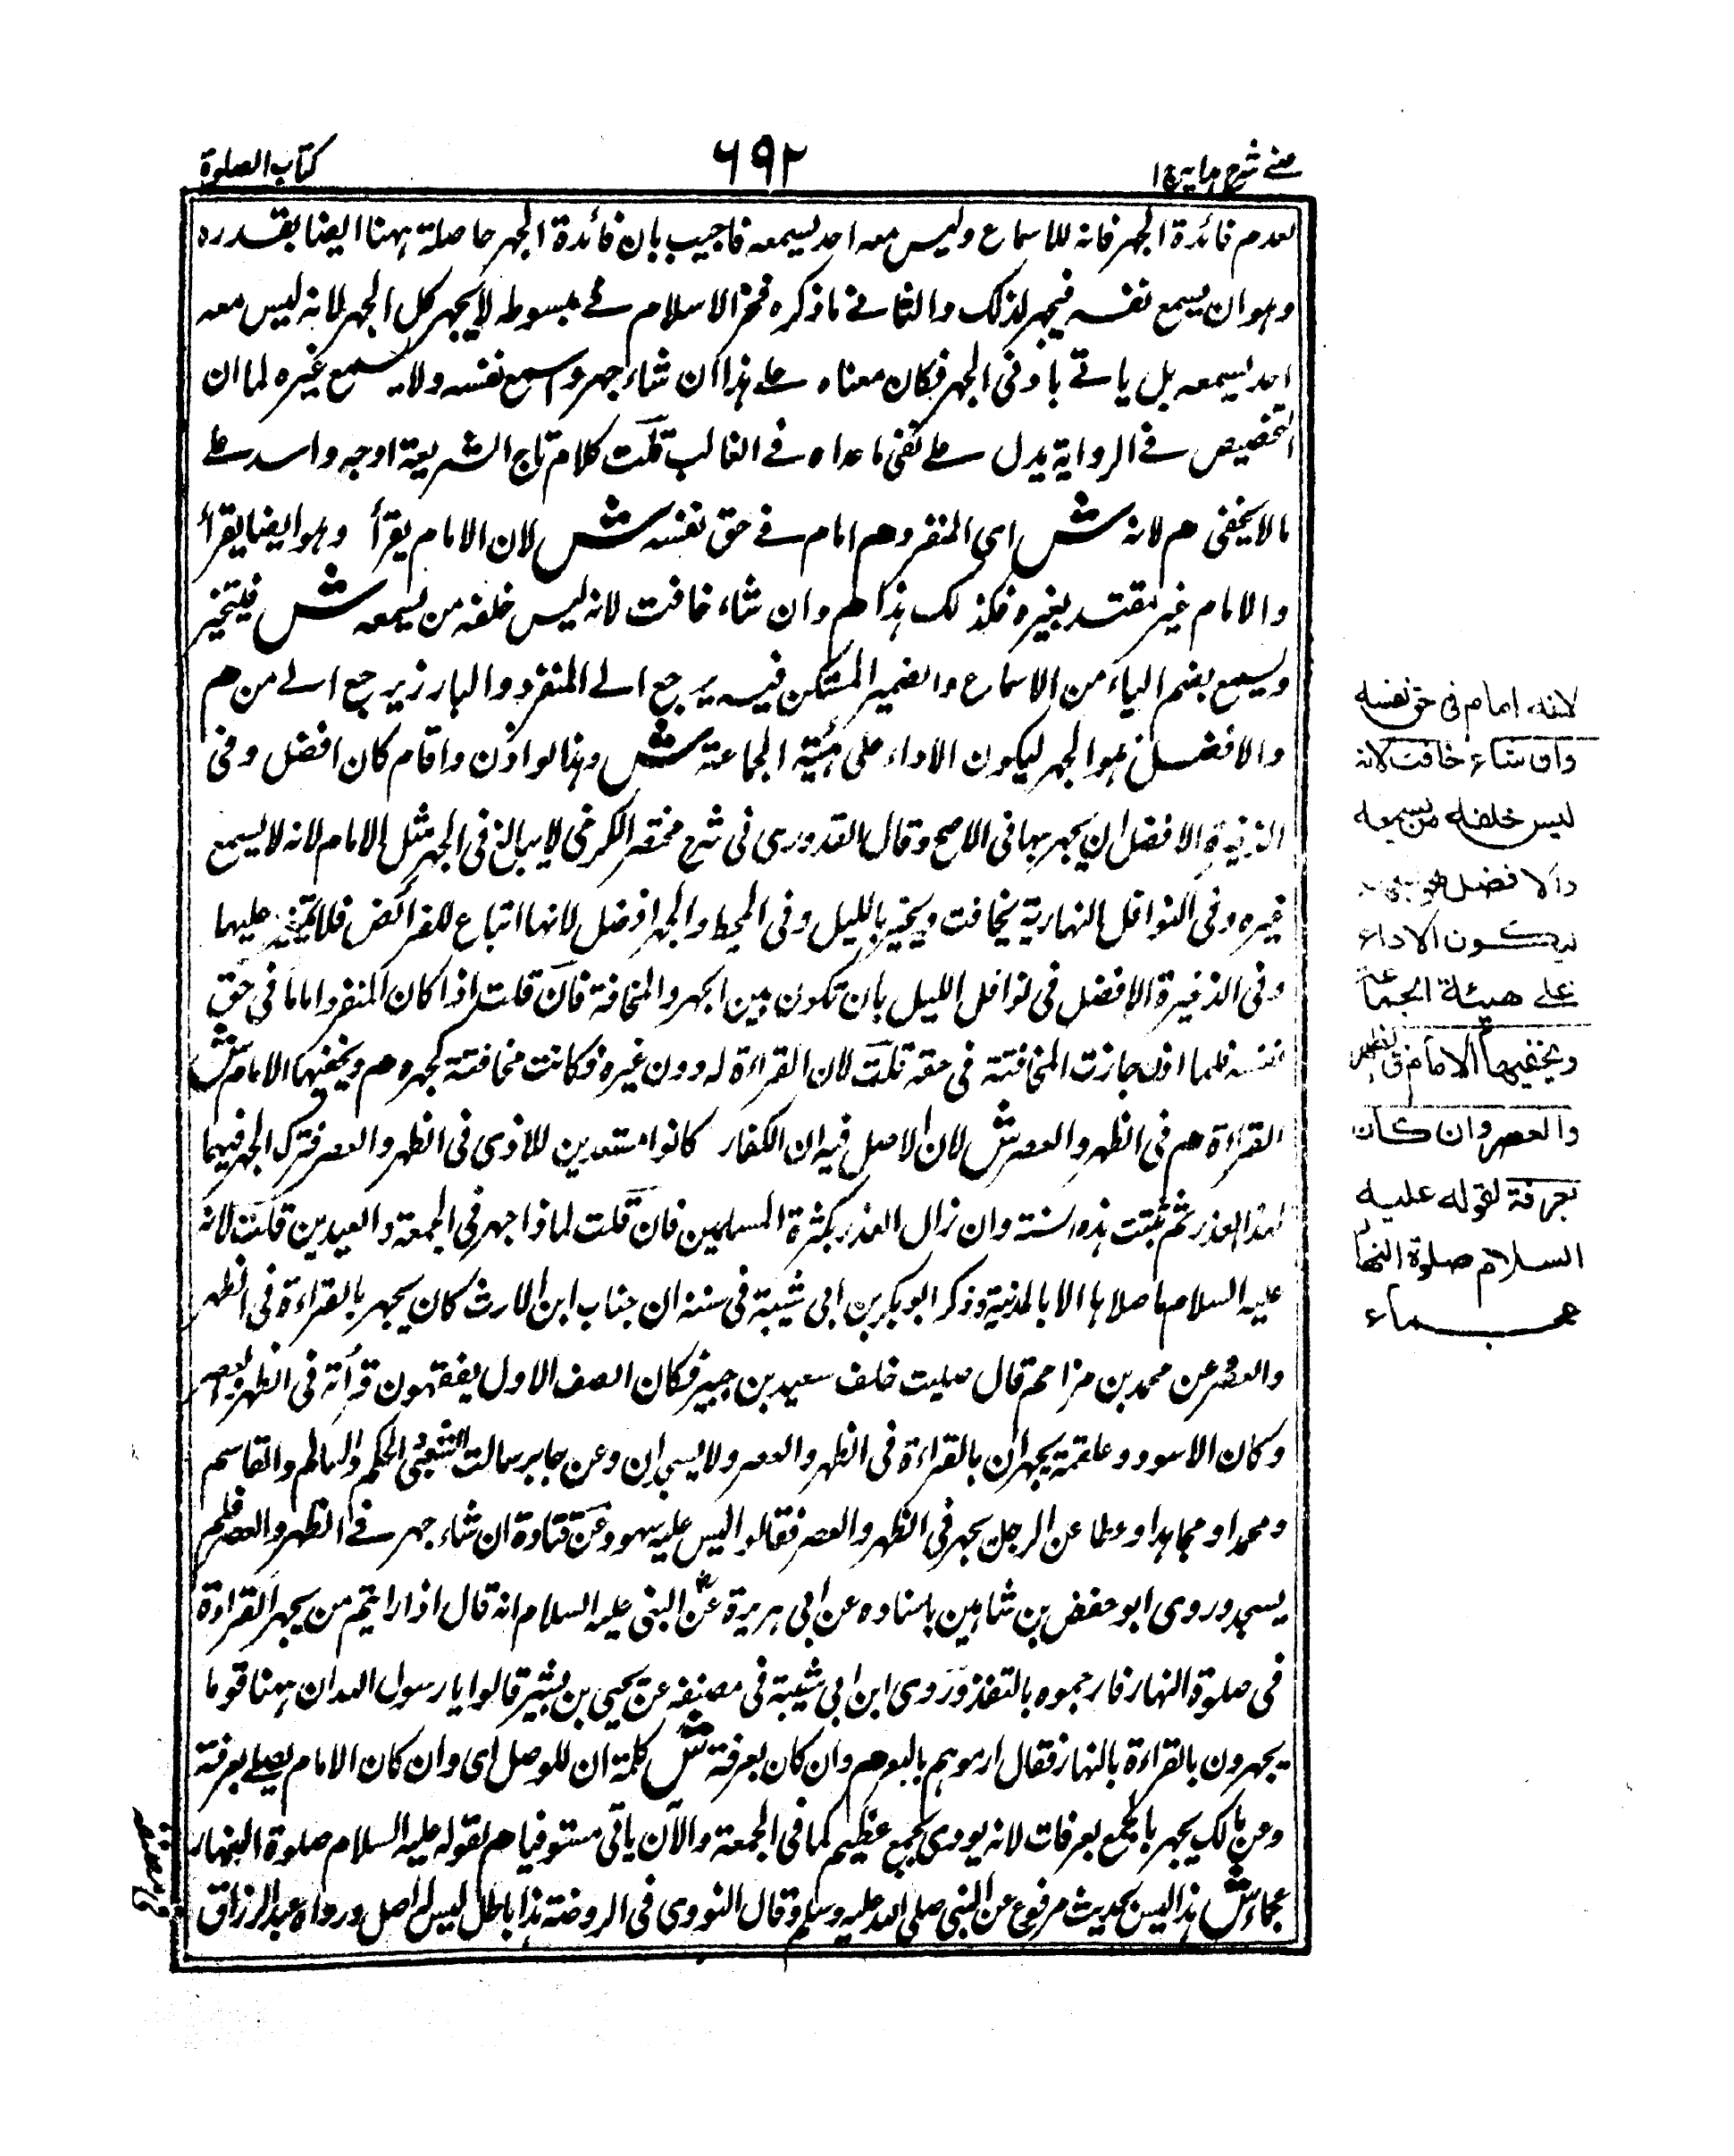 عینے شرح ہدایہ ج ۱
۶۹۲
کتاب الصلوة
لعدم فائدة الجهر فانه للاسماع وليس معه احد يسمعه فاجيب بان فائدة الجهر حاصلة ههنا ايضا بقدره
وهو ان يسمع نفسه فيجهر لذلك والثانے ما ذكره فخر الاسلام فے مبسوطه لا يجهر كل الجهر لانه ليس معه
احد يسمعه بل ياتے بادنى الجهر فكان معناه علے هذا ان شاء جهر واسمع نفسه ولا يسمع غيره لما ان
التخصيص فے الرواية يدل علے نفى ما عداه فے الغالب قلت كلام تاج الشريعة اوجه واسد علے
ما لا يخفى هم لانه ش اى المنفرد هم امام فے حق نفسه ش لان الامام يقرأ وهو ايضا يقرأ
والامام غير مقتد بغيره فكذلك هذا هم وان شاء خافت لانه ليس خلفه من يسمعه ش فيتخير
ويسمع بضم الياء من الاسماع والضمير المستكن فيه يرجع الے المنفرد والبارز يرجع الے من هم
والافضل هو الجهر ليكون الاداء على هيئة الجماعة ش وهذا لو اذن واقام كان افضل وفى
الذخيرة الافضل ان يجهر بها فى الاصح وقال القدورى فى شرح مختصر الكرخى لا يبالغ فى الجهر مثل الامام لانه لا يسمع
غيره وفى النوافل النهارية يخافت ويتخير بالليل وفى المحيط والجهر افضل لانها اتباع للفرائض فلا يتخير عليها
وفى الذخيرة الافضل فى نوافل الليل بان تكون بين الجهر والمخافة فان قلت اذا كان المنفرد اماما فى حق
نفسه فلما اذن جازت المخافتة فى حقه قلت لان القراءة له دون غيره فكانت مخافتة كجهره هم ويخفيها الامام ش
القراءة هم فى الظهر والعصر ش لان الاصل فيه ان الكفار كانوا مستعدين للاذى فى الظهر والعصر فترك الجهر فيهما
لهذا العذر ثم ثبتت هذه السنة وان زال العذر بكثرة المسلمين فان قلت لماذا جهر فى الجمعة والعيدين قلت لانه
عليه السلام ما صلاها الا بالمدنية وذكر ابو بكر بن ابى شيبة فى سننه ان جناب ابن الارث كان يجهر بالقراءة فى الظهر
والعصر وعن محمد بن مزاحم قال صليت خلف سعيد بن جبير فكان الصف الاول يفقهون قرأته فى الظهر والعصر
وكان الاسود وعلقمة يجهران بالقراءة فى الظهر والعصر ولا يسجدان وعن جابر سالت الشعبى والحكم والسالم والقاسم
ومحمدا ومجاهدا وعطا عن الرجل يجهر فى الظهر والعصر فقالوا ليس عليه سهو وعن قتادة ان شاء جهر فے الظهر والعصر فلم
يسجد وروى ابو حفص بن شاهين باسناده عن ابى هريرة عن النبى عليه السلام انه قال اذا رايتم من يجهر القراءة
فى صلوة النهار فارجموه وروى ابن ابى شيبة فى مصنفه عن يحيى بن بشير قالوا يا رسول الله ان ههنا قوما
يجهرون بالقراءة بالنهار فقال ارموهم بالبعر هم وان كان بعرفة ش كلمة ان للوصل اى وان كان الامام يصلے بعرفة
وعن مالك يجهر بالجمع بعرفات لانه يودى بجمع عظيم كما فى الجمعة والآن ياتى مستوفيا هم لقوله عليه السلام صلوة النهار
عجماء ش هذا ليس بحديث مرفوع عن النبى صلى الله عليه وسلم وقال النووى فى الروضة هذا باطل ليس له اصل ورواه عبد الرزاق
لانه امام فى حق نفسه
وان شاء خافت لانه
ليس خلفه من يسمعه
والافضل هو الجهر
ليكون الاداء
على هيئة الجماعة
ويخفيها الامام فى الظهر
والعصر وان كان
بعرفة لقوله عليه
السلام صلوة النهار
عجماء